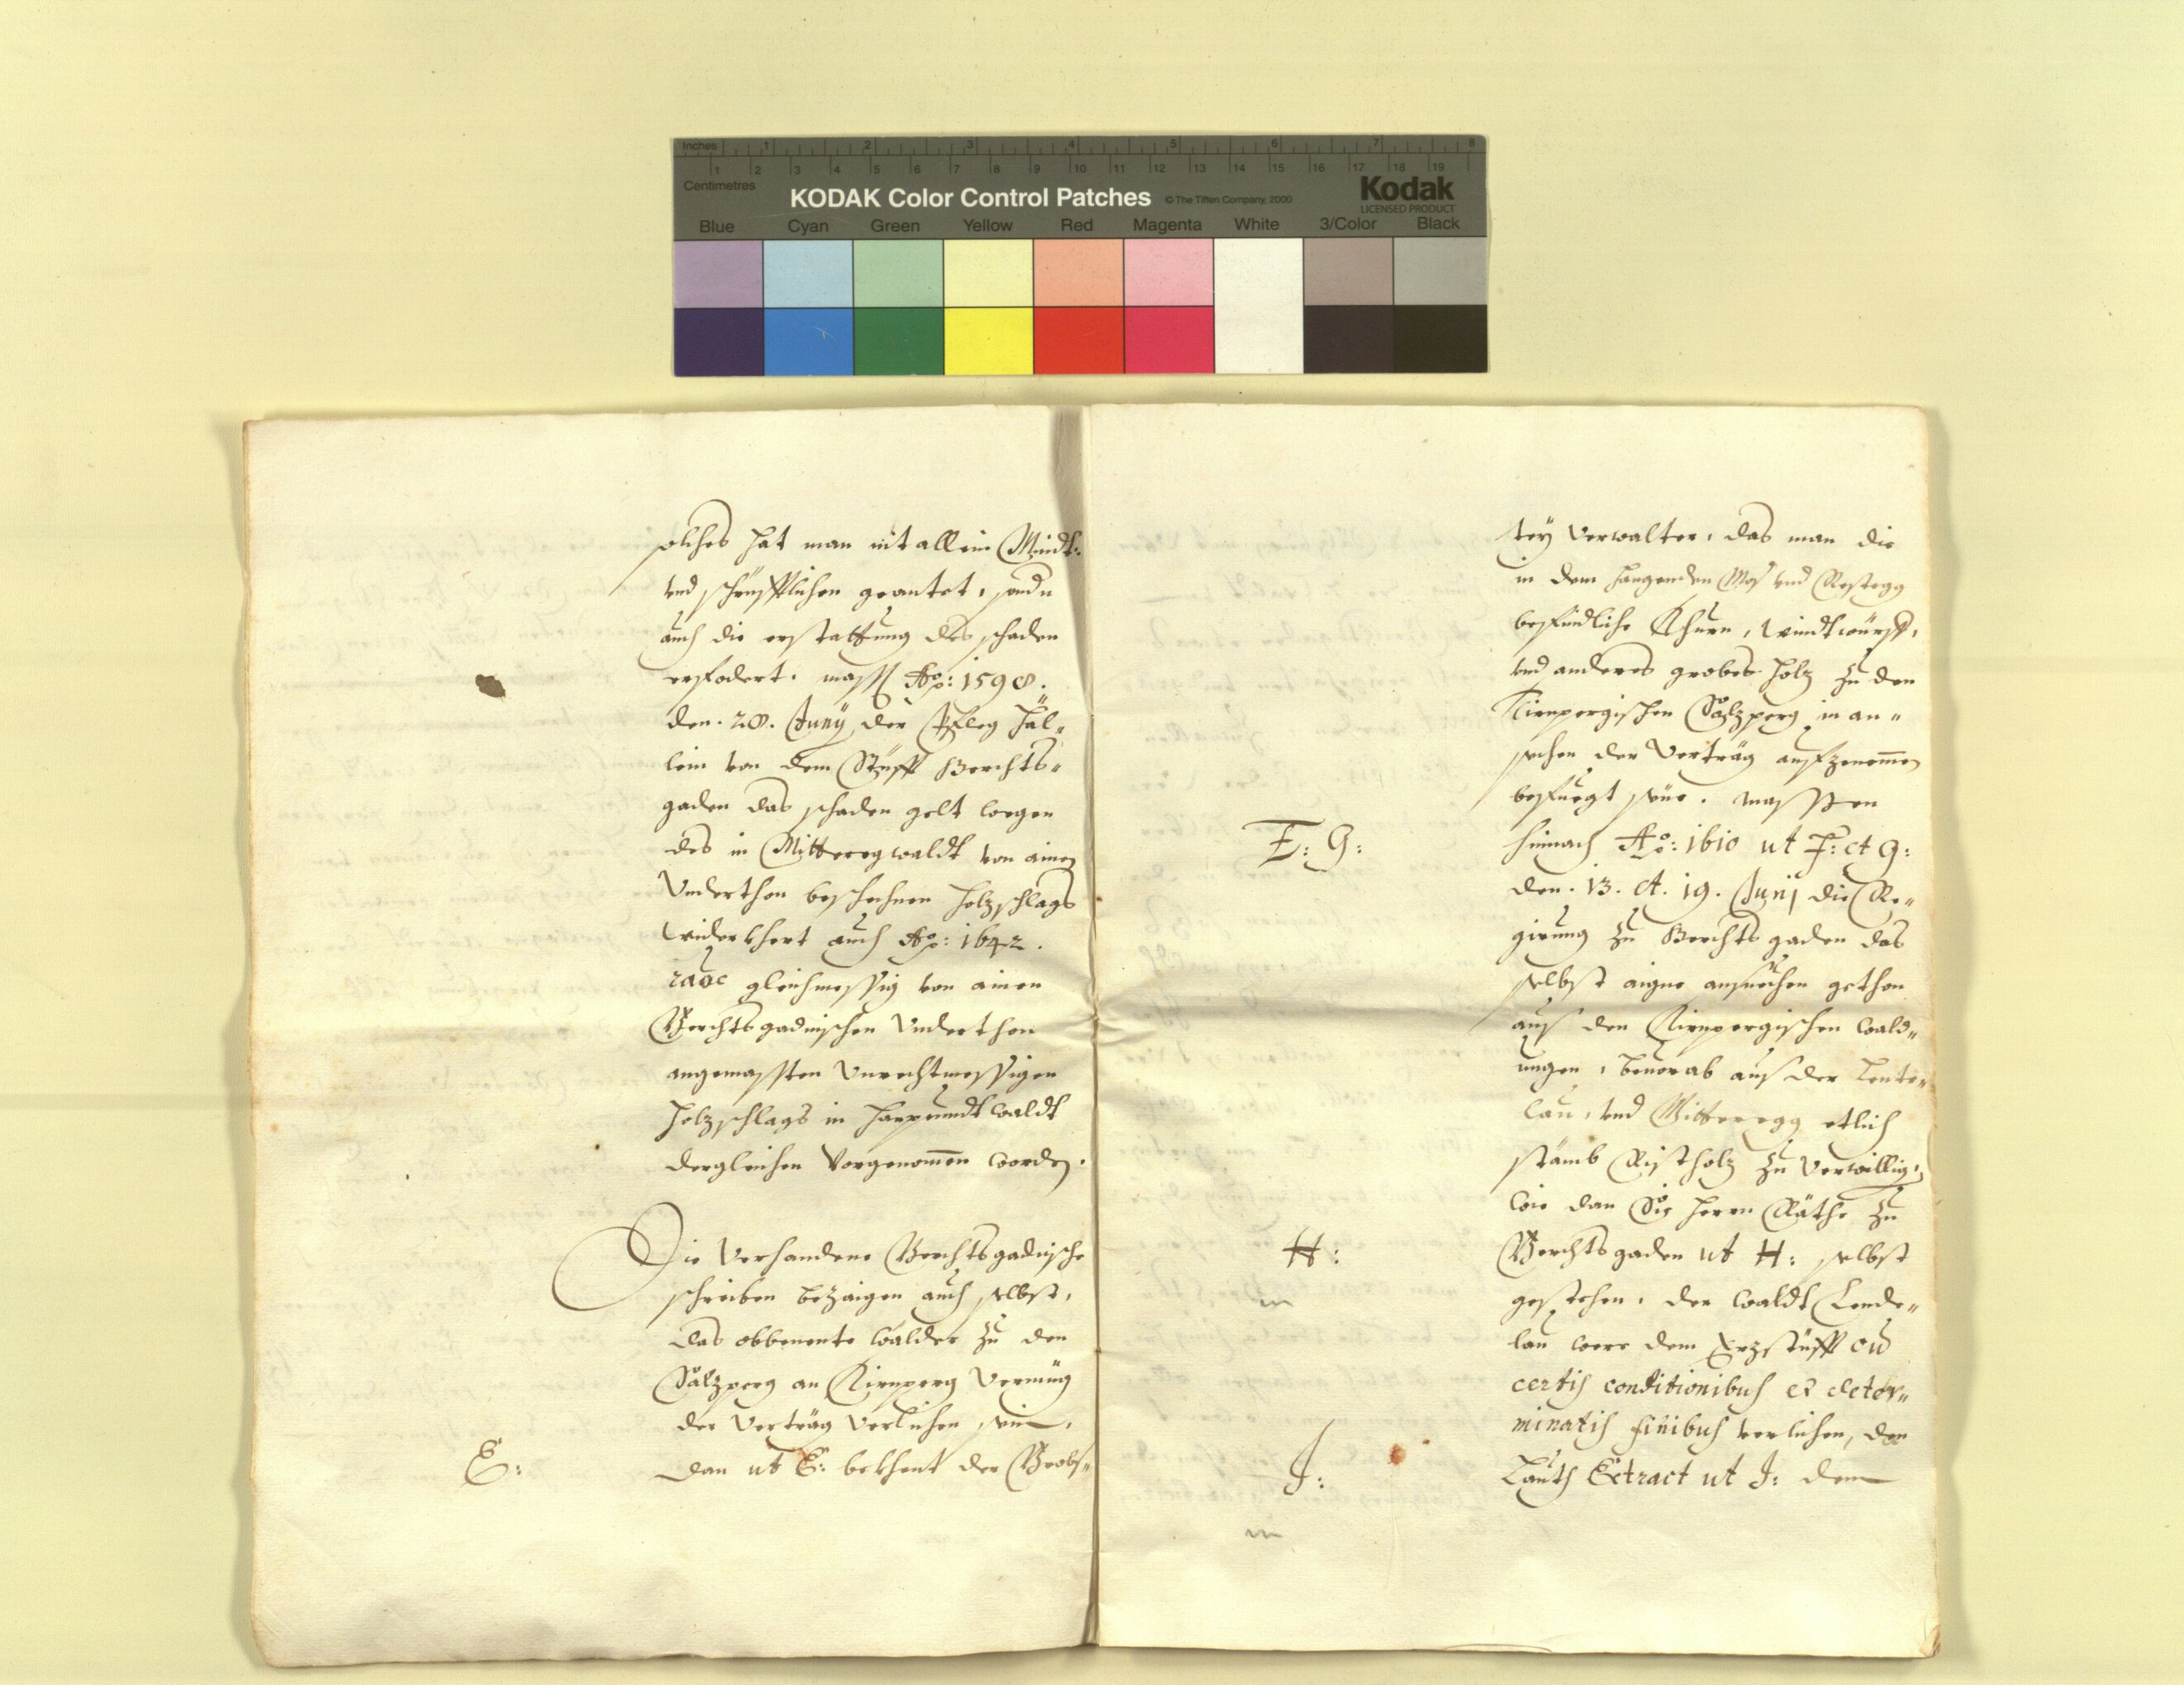 Inches 1 2 3 4 5 6 7 8
1 2 3 4 5 6 7 8 9 10 11 12 13 14 15 16 17 18 19
Centimetres
KODAK Color Control Patches © The Tiffen Company, 2000 Kodak
LICENSED PRODUCT
Blue Cyan Green Yellow Red Magenta White 3/Color Black
solches hat man nit allein Mindt:
vnd schrifftlichen geantet, sondn
auch die erstattung des schaden
erfodert. mass Aō: 1598.
den. 28. Junÿ der Pfleg Häl„
lein von dem Stüfft Berchts„
gaden das schaden gelt wegen
des in Mitteregwaldt von einen
Vnderthon beschehnen holzschlags
widerkhert auch Aō: 1642.
gleichmessig von ainen
Berchtsgadnischen Vnderthon
angemassten Vnrechtmessigen
holzschlags in waldt
dergleichen Vorgenommen worden.
Die Verhandene Berchtsgadnische
schreiben bezaigen auch selbst,
das obbenente wälder zu den
Sälzperg an Dirnperg Vermüg
der Verträg Verlichen sein,
E:
dan ut E: bekhent der Brobs„
teÿ Verwalter, das man die
in dem hangenden Mos vnd Rostegg
befindliche Khurn, windtwürff,
vnd anderes grobes holz zu den
Dirnpergischen Sälzperg in an„
sechen der Verträg aufzenemmen
befuegt seÿe. massen
F: G:
hinnach Aō: 1610 ut F: et G:
den. 13. et. 19. Junij die Re„
girung zu Berchtsgaden das
selbst aigne ansuchen gethon
aus den Dirnpergischen wald„
ungen, beuorab aus der Lente„
lau, vnd Mitteregg etlich
stämb Ristholz zu Verwillig,
wie dan Die herrn Räthe zu
H:
Berchtsgaden ut H: selbst
gestehen, der waldt Lende„
lau were dem Erzstüfft cū
certis conditionibus et deter„
minatis finibus verlichen, dan
J:
Lauth Extract ut J: dem